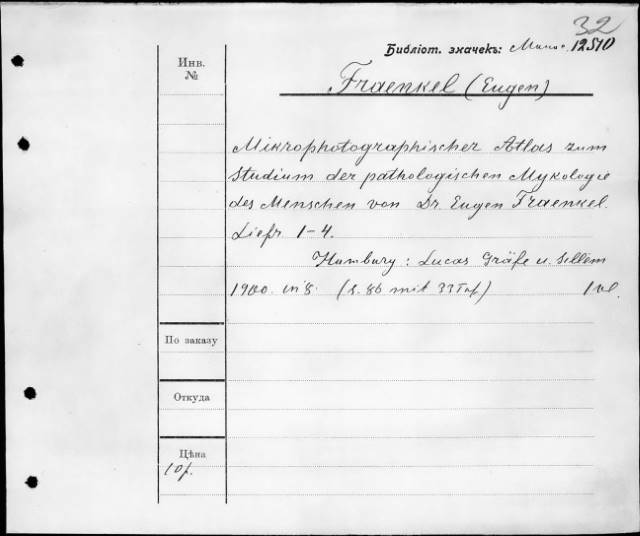 32
Библіот. значекъ: 12510
Инв.
№
Fraenkel (Eugen)
Mikrophotographischer Atlas zum
Studium der pathologischen Mykologie
des Menschen von Dr. Eugen Fraenkel.
Liefr. 1-4.
Hamburg: Lucas Gräfe u. Sillem
1900. in 8. (S. 86 mit 33 Taf) 1 vol.
По заказу
Откуда
Цѣна
10р.